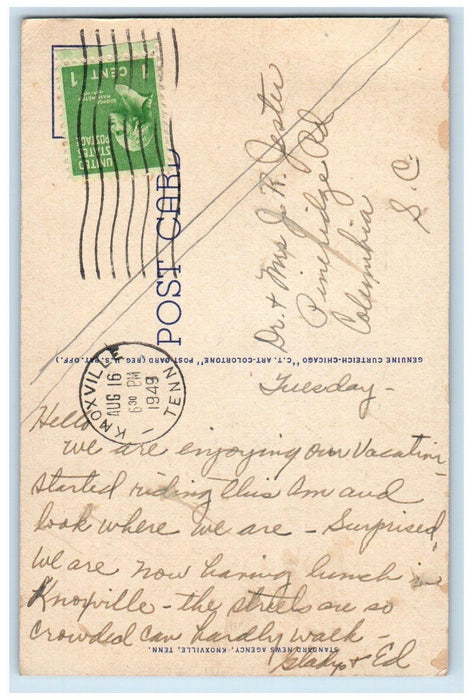 UNITED
STATES
POSTAGE
GEORGE
WASHINGTON
1 CENT 1
POST CARD
KNOXVILLE
TENN.
AUG 16
6 30 PM
1949
Dr. + Mrs J. R. Jester
Pineridge Rd
Columbia
S. C.
GENUINE CURTEICH-CHICAGO "C.T. ART-COLORTONE" POST CARD (REG. U.S. PAT. OFF.)
Tuesday -
Hello
we are enjoying our Vacation
started riding this Am and
look where we are - Surprised,
we are now having lunch in
Knoxville - the streets are so
crowded can hardly walk -
Gladys + Ed
STANDARD NEWS AGENCY, KNOXVILLE, TENN.